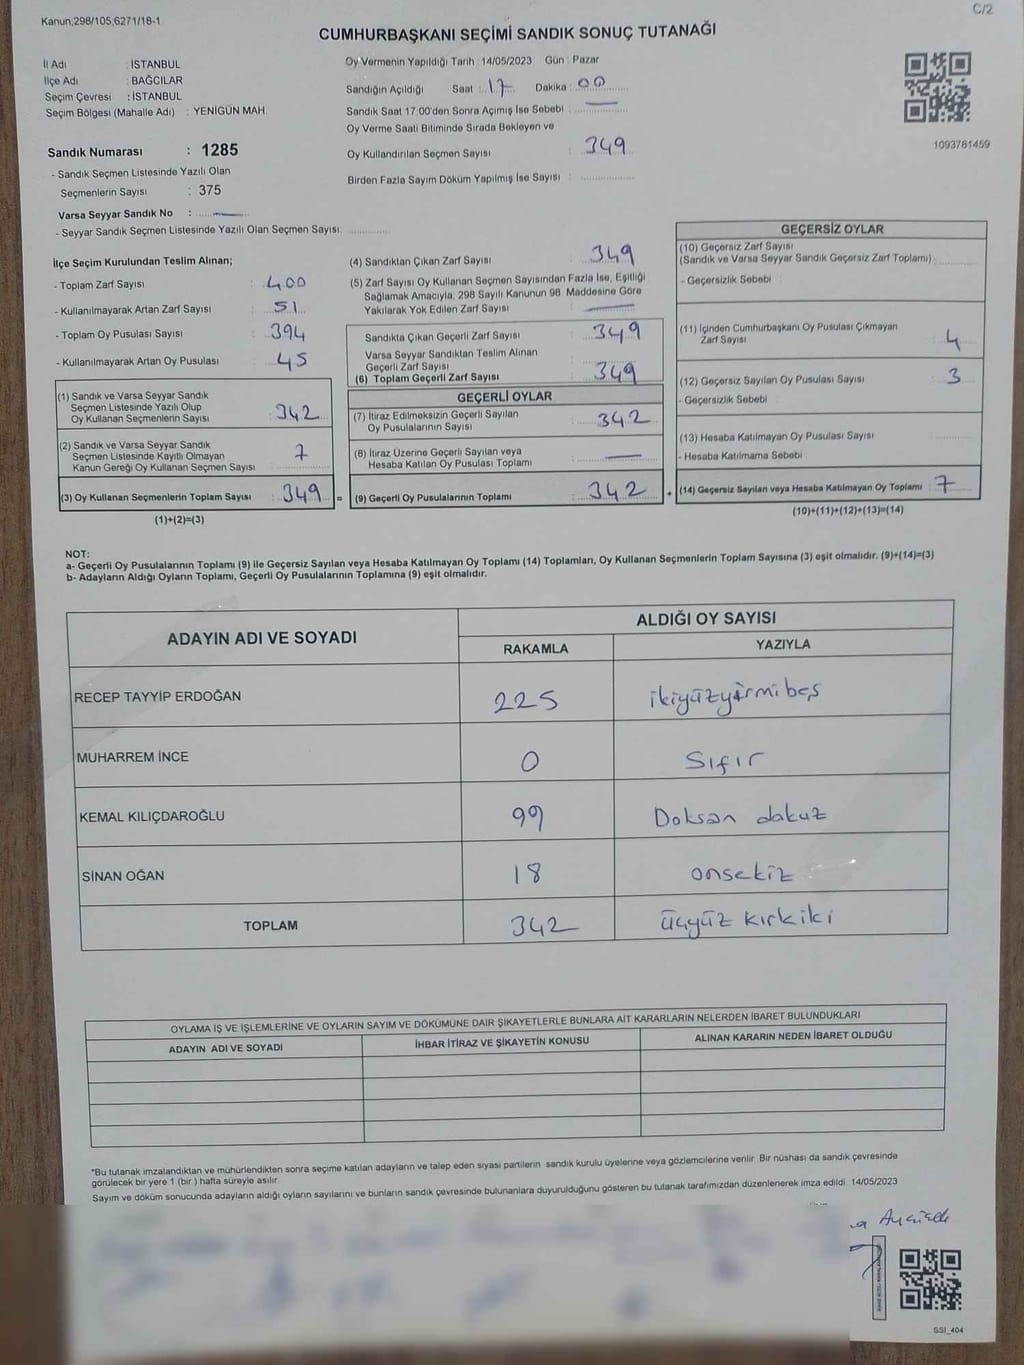 C/2
Kanun,298/105,6271/18-1
CUMHURBAŞKANI SEÇİMİ SANDIK SONUÇ TUTANAĞI
İl Adı : İSTANBUL
İlçe Adı : BAĞCILAR
Seçim Çevresi : İSTANBUL
Seçim Bölgesi (Mahalle Adı) : YENİGÜN MAH.
Oy Vermenin Yapıldığı Tarih : 14/05/2023 Gün : Pazar
Sandığın Açıldığı Saat : 17 Dakika : 00
Sandık Saat 17:00'den Sonra Açımış İse Sebebi : —
Oy Verme Saati Bitiminde Sırada Bekleyen ve
Oy Kullandırılan Seçmen Sayısı : 349
Birden Fazla Sayım Döküm Yapılmış İse Sayısı :
1093781459
Sandık Numarası : 1285
- Sandık Seçmen Listesinde Yazılı Olan
Seçmenlerin Sayısı : 375
Varsa Seyyar Sandık No : —
- Seyyar Sandık Seçmen Listesinde Yazılı Olan Seçmen Sayısı:
İlçe Seçim Kurulundan Teslim Alınan;
- Toplam Zarf Sayısı : 400
- Kullanılmayarak Artan Zarf Sayısı : 51
- Toplam Oy Pusulası Sayısı : 394
- Kullanılmayarak Artan Oy Pusulası : 45
(1) Sandık ve Varsa Seyyar Sandık
Seçmen Listesinde Yazılı Olup
Oy Kullanan Seçmenlerin Sayısı : 342
(2) Sandık ve Varsa Seyyar Sandık
Seçmen Listesinde Kayıtlı Olmayan
Kanun Gereği Oy Kullanan Seçmen Sayısı : 7
(3) Oy Kullanan Seçmenlerin Toplam Sayısı : 349 =
(1)+(2)=(3)
(4) Sandıktan Çıkan Zarf Sayısı : 349
(5) Zarf Sayısı Oy Kullanan Seçmen Sayısından Fazla İse, Eşitliği
Sağlamak Amacıyla, 298 Sayılı Kanunun 98. Maddesine Göre
Yakılarak Yok Edilen Zarf Sayısı : —
Sandıkta Çıkan Geçerli Zarf Sayısı : 349
Varsa Seyyar Sandıktan Teslim Alınan
Geçerli Zarf Sayısı
(6) Toplam Geçerli Zarf Sayısı : 349
GEÇERLİ OYLAR
(7) İtiraz Edilmeksizin Geçerli Sayılan
Oy Pusulalarının Sayısı : 342
(8) İtiraz Üzerine Geçerli Sayılan veya
Hesaba Katılan Oy Pusulası Toplamı : —
(9) Geçerli Oy Pusulalarının Toplamı : 342 +
GEÇERSİZ OYLAR
(10) Geçersiz Zarf Sayısı
(Sandık ve Varsa Seyyar Sandık Geçersiz Zarf Toplamı)
- Geçersizlik Sebebi :
(11) İçinden Cumhurbaşkanı Oy Pusulası Çıkmayan
Zarf Sayısı : 4
(12) Geçersiz Sayılan Oy Pusulası Sayısı : 3
- Geçersizlik Sebebi :
(13) Hesaba Katılmayan Oy Pusulası Sayısı
- Hesaba Katılmama Sebebi :
(14) Geçersiz Sayılan veya Hesaba Katılmayan Oy Toplamı : 7
(10)+(11)+(12)+(13)=(14)
NOT:
a- Geçerli Oy Pusulalarının Toplamı (9) ile Geçersiz Sayılan veya Hesaba Katılmayan Oy Toplamı (14) Toplamları, Oy Kullanan Seçmenlerin Toplam Sayısına (3) eşit olmalıdır. (9)+(14)=(3)
b- Adayların Aldığı Oyların Toplamı, Geçerli Oy Pusulalarının Toplamına (9) eşit olmalıdır.
ADAYIN ADI VE SOYADI
ALDIĞI OY SAYISI
RAKAMLA YAZIYLA
RECEP TAYYİP ERDOĞAN 225 ikiyüzyirmibeş
MUHARREM İNCE 0 Sıfır
KEMAL KILIÇDAROĞLU 99 Doksan dokuz
SİNAN OĞAN 18 onsekiz
TOPLAM 342 üçyüz kırkiki
OYLAMA İŞ VE İŞLEMLERİNE VE OYLARIN SAYIM VE DÖKÜMÜNE DAİR ŞİKAYETLERLE BUNLARA AİT KARARLARIN NELERDEN İBARET BULUNDUKLARI
ADAYIN ADI VE SOYADI İHBAR İTİRAZ VE ŞİKAYETİN KONUSU ALINAN KARARIN NEDEN İBARET OLDUĞU
*Bu tutanak imzalandıktan ve mühürlendikten sonra seçime katılan adayların ve talep eden siyasi partilerin sandık kurulu üyelerine veya gözlemcilerine verilir. Bir nüshası da sandık çevresinde
görülecek bir yere 1 (bir) hafta süreyle asılır.
Sayım ve döküm sonucunda adayların aldığı oyların sayılarını ve bunların sandık çevresinde bulunanlara duyurulduğunu gösteren bu tutanak tarafımızdan düzenlenerek imza edildi. 14/05/2023
SSI_404